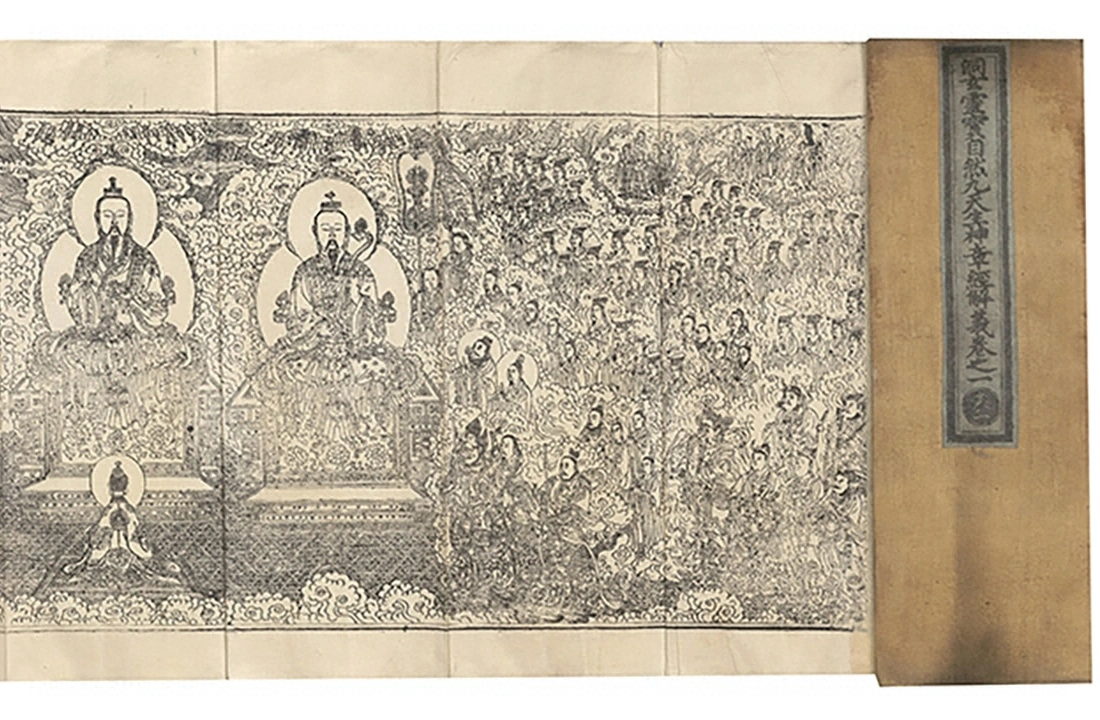 洞玄靈寶自然九天生神章經解義卷之一